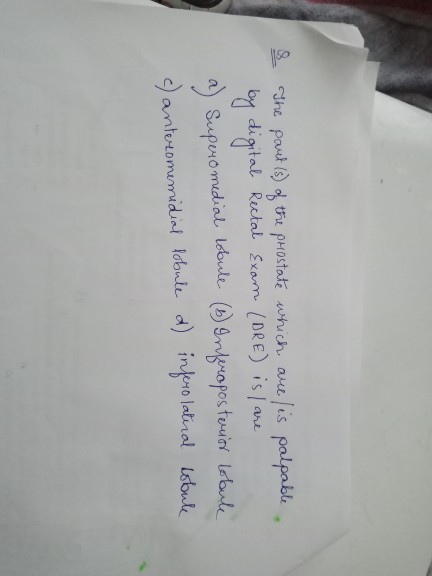 Q. The part(s) of the prostate which are/is palpable
by digital Rectal Exam (DRE) is/are
a) Superomedial lobule (b) Inferoposterior lobule
c) anteromemidial lobule d) inferolateral lobule